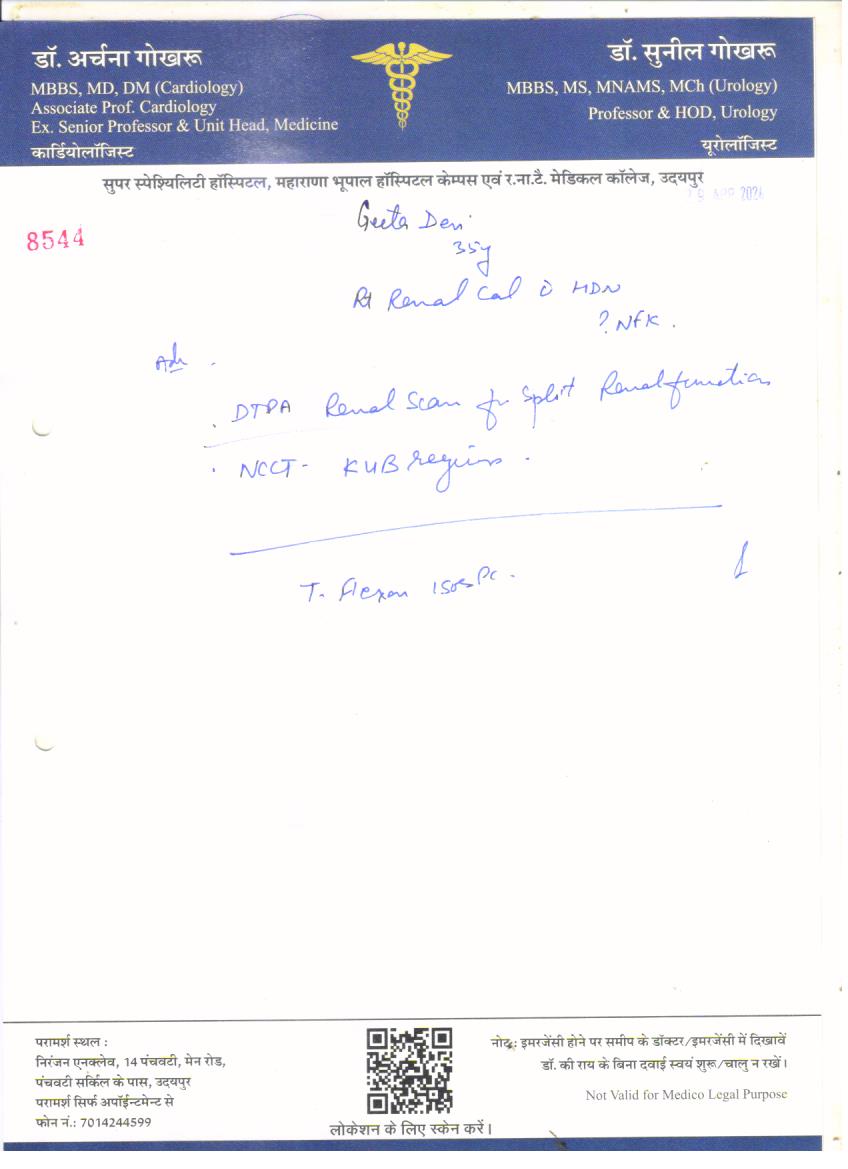 डॉ. अर्चना गोखरू
MBBS, MD, DM (Cardiology)
Associate Prof. Cardiology
Ex. Senior Professor & Unit Head, Medicine
कार्डियोलॉजिस्ट
डॉ. सुनील गोखरू
MBBS, MS, MNAMS, MCh (Urology)
Professor & HOD, Urology
यूरोलॉजिस्ट
सुपर स्पेश्यिलिटी हॉस्पिटल, महाराणा भूपाल हॉस्पिटल केम्पस एवं र.ना.टै. मेडिकल कॉलेज, उदयपुर
APR
8544
Geeta Devi
35y
Rt Renal Cal HDN
? NFK.
Adv
. DTPA Renal Scan for Split Renal function
. NCCT- KUB region.
T.
परामर्श स्थल :
निरंजन एनक्लेव, 14 पंचवटी, मेन रोड,
पंचवटी सर्किल के पास, उदयपुर
परामर्श सिर्फ अपॉईन्टमेन्ट से
फोन नं.: 7014244599
लोकेशन के लिए स्केन करें।
नोट: इमरजेंसी होने पर समीप के डॉक्टर/इमरजेंसी में दिखावें
डॉ. की राय के बिना दवाई स्वयं शुरू/चालु न रखें।
Not Valid for Medico Legal Purpose